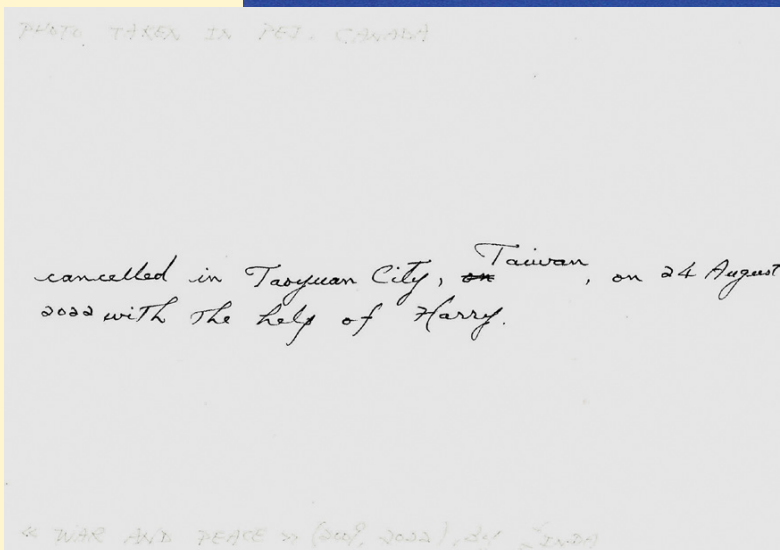 PHOTO TAKEN IN PEI. CANADA
cancelled in Taoyuan City, on Taiwan, on 24 August
2022 with the help of Harry.
« WAR AND PEACE » (2009, 2022), BY